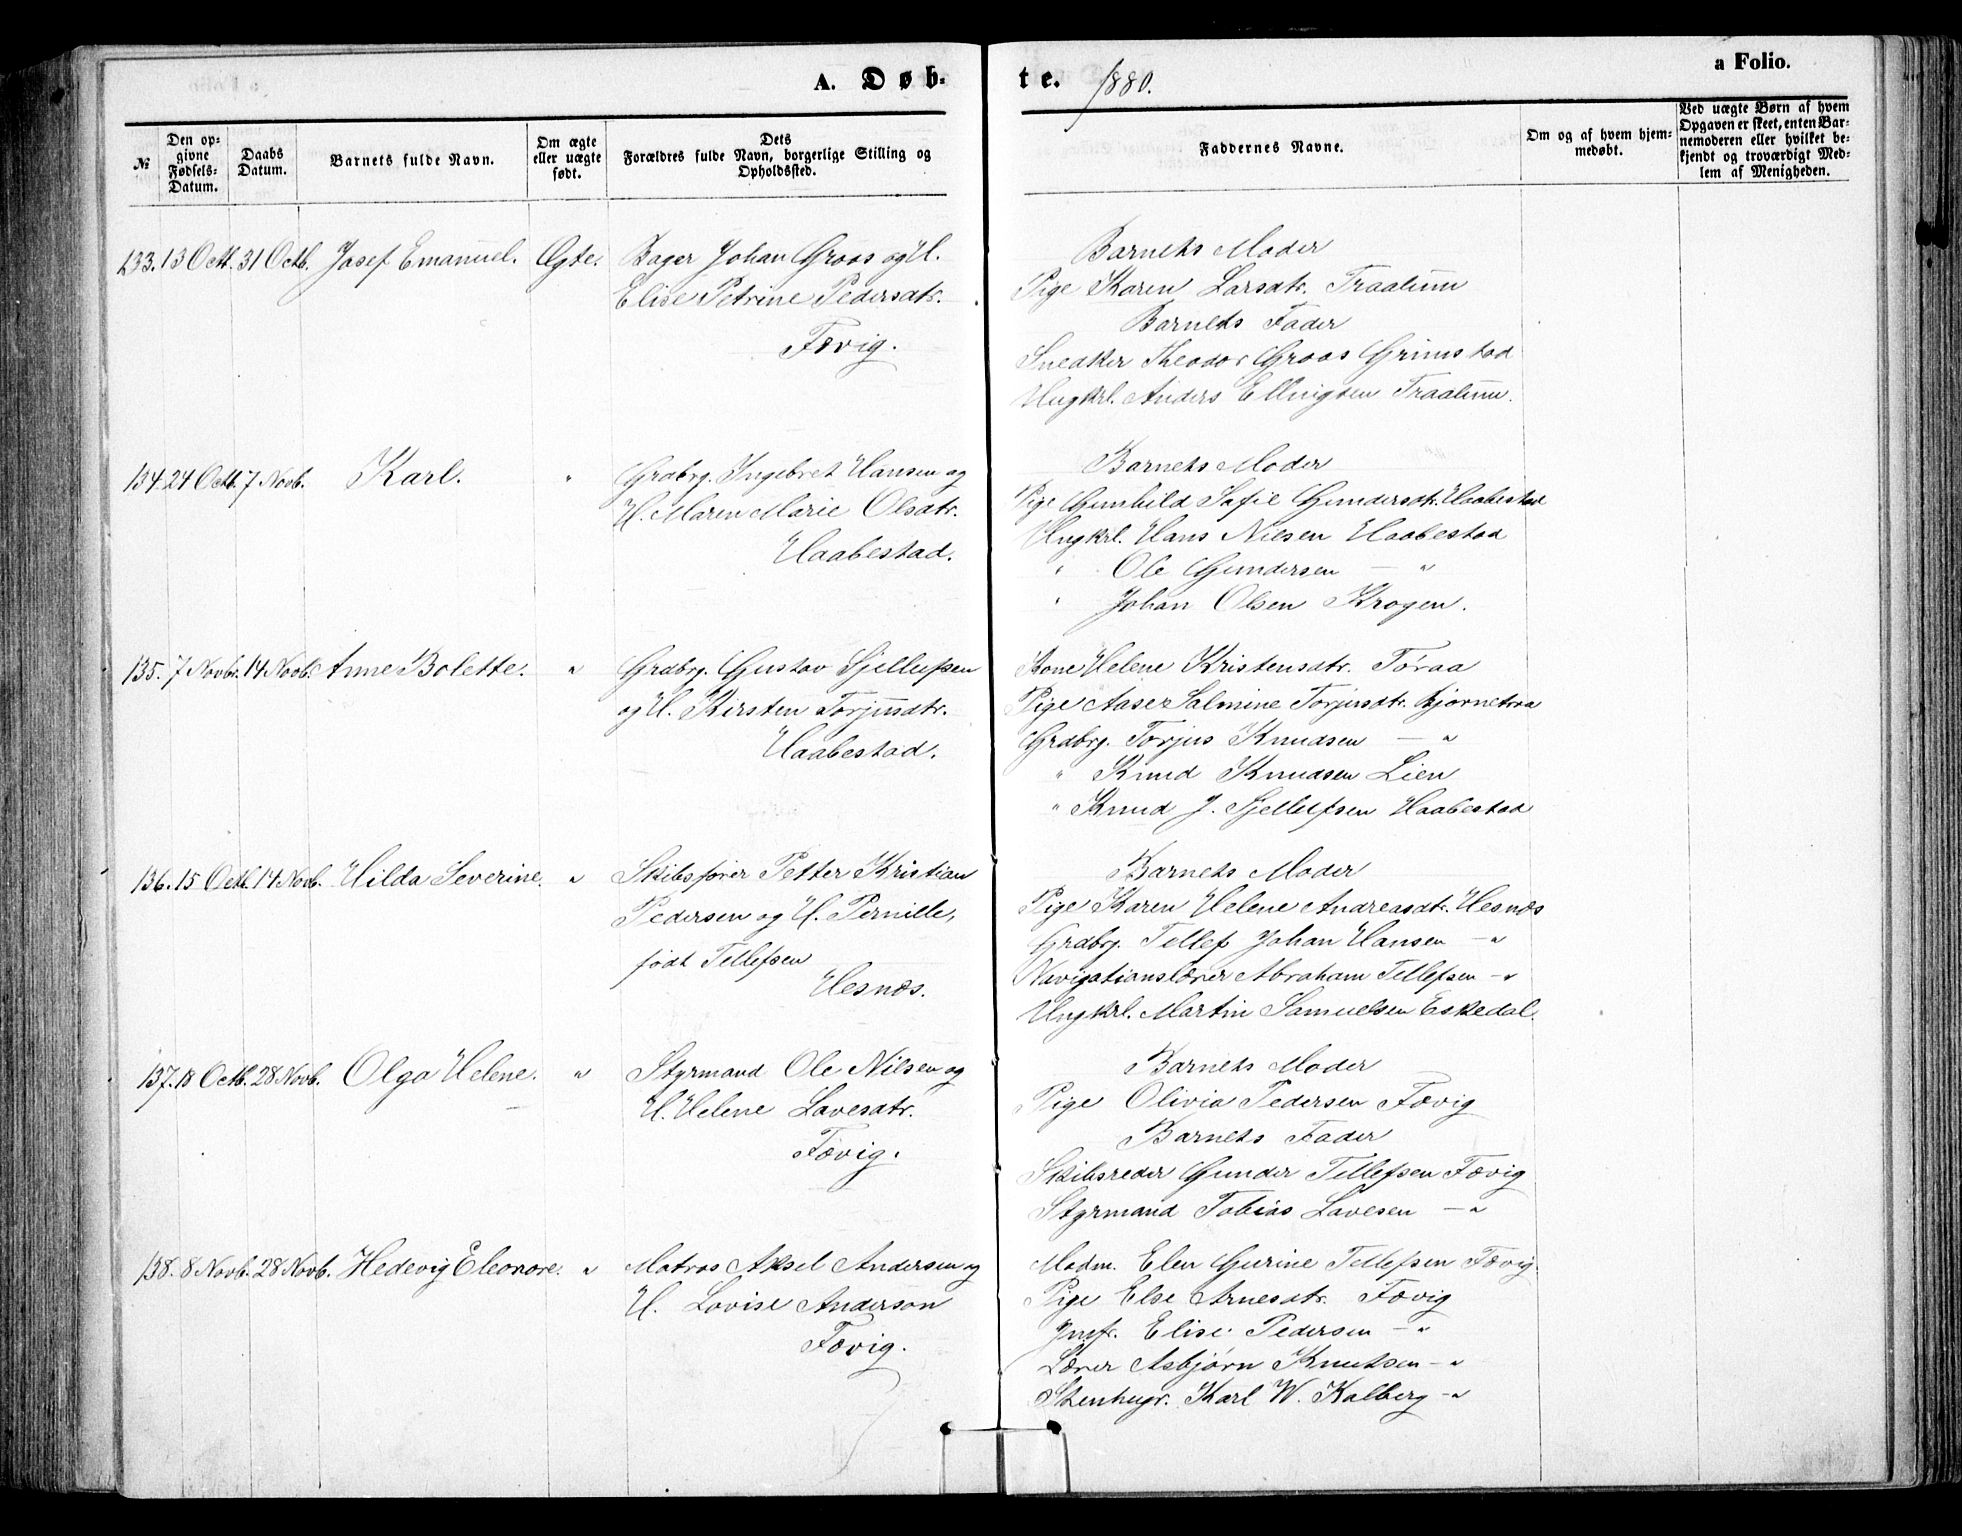 A. Døb-
te. 1880.
a Folio.
№
Den op-
givne
Fødsels-
Datum.
Daabs
Datum.
Barnets fulde Navn.
Om ægte
eller uægte
født.
Dets
Forældres fulde Navn, borgerlige Stilling og
Opholdssted.
Faddernes Navne.
Om og af hvem hjem-
medøbt.
Ved uægte Børn af hvem
Opgaven er skeet, enten Bar-
nemoderen eller hvilket be-
kjendt og troværdigt Med-
lem af Menigheden.
133. 13 Octb. 31 Octb. Josef Emanuel. Ægte. Bager Johan Groos og H.
Elise Petrine Pedersdtr.
Fævig.
Barnets Moder
Pige Karen Larsdtr. Traalum
Barnets Fader
Snedker Theodor Groos Grimstad
Ungkrl. Anders Ellingsen Traalum.
134. 24 Octb. 7 Novb. Karl. " Grdbrg. Ingebret Hansen og
H. Maren Marie Olsdtr.
Haabestad.
Barnets Moder
Pige Gunhild Sofie Gundersdtr. Haabestad
Ungkrl. Hans Nilsen Haabestad
" Ole Gundersen — "
" Johan Olsen Krogen.
135. 7 Novb. 14 Novb. Anne Bolette. " Grdbrg. Gustav Sjellefsen
og H. Kirsten Torjusdtr.
Haabestad.
Kone Helene Kristensdtr. Toraa
Pige Aase Salmine Torjusdtr. Bjornetraa
Grdbrg. Torjus Knudsen — "
" Knud Knudsen Lien
" Knud J. Sjellefsen Haabestad
136. 15 Octb. 14 Novb. Hilda Severine. " Skibsfører Petter Kristian
Pedersen og H. Pernille,
født Tellefsen
Hesnæs.
Barnets Moder
Pige Karen Helene Andreasdtr. Hesnæs
Grdbrg. Tellef Johan Hansen — "
Navigationslærer Abraham Tellefsen — "
Ungkrl. Martin Samuelsen Eskedal.
137. 18 Octb. 28 Novb. Olga Helene. " Styrmand Ole Nilsen og
H. Helene Lavesdtr.
Fævig.
Barnets Moder
Pige Olivia Pedersen Fævig
Barnets Fader
Skibsreder Gunder Tellefsen Fævig
Styrmand Tobias Lavesen — "
138. 8 Novb. 28 Novb. Hedevig Eleonore. " Matros Aksel Andersen og
H. Lovise Anderson
Fævig.
Madm. Elen Gurine Tellefsen Fævig.
Pige Else Arnesdtr. Fævig
Jmfr. Elise Pedersen — "
Lærer Asbjørn Knutsen — "
Stenhugr. Karl W. Kalberg — "